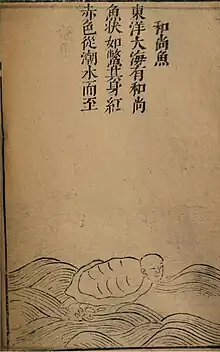 和尚魚
東洋大海有和尚
魚状如鱉其身紅
赤色從潮水而至